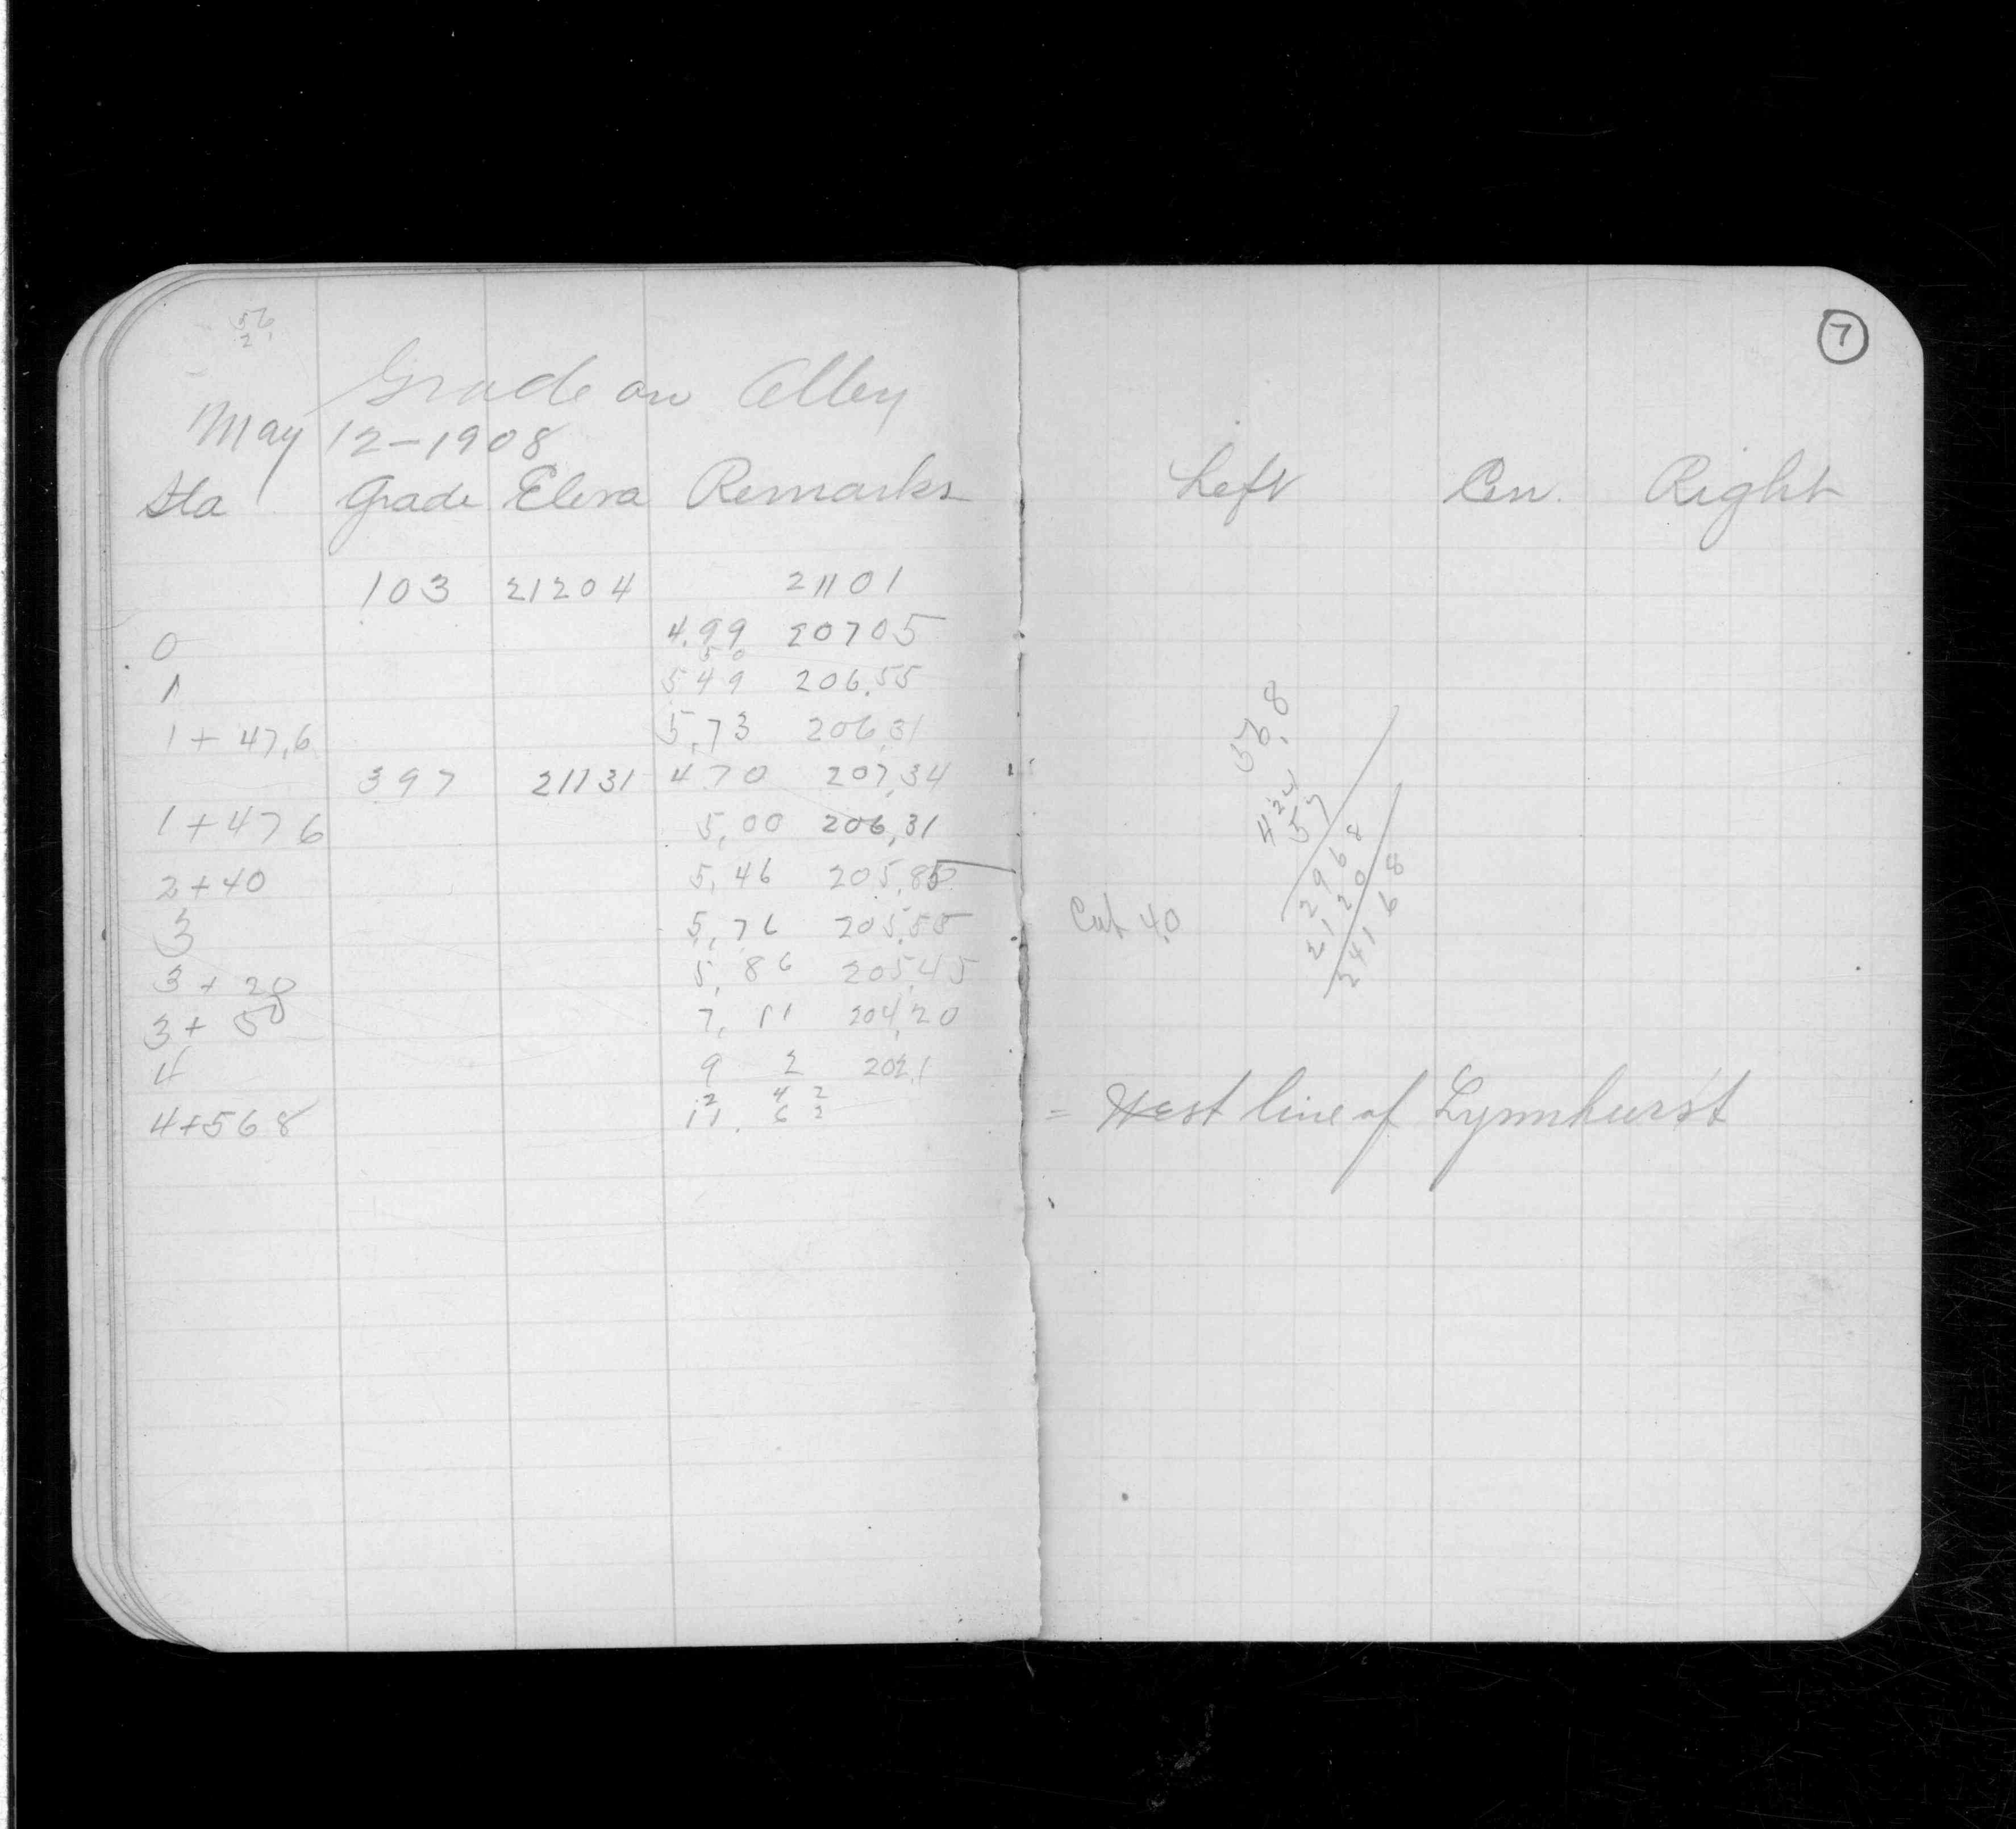 56
2
Grade on Alley
May 12-1908
Sta Grade Eleva Remarks
103 21204 21101
0 4.99 20705
50
1 549 206.55
1 + 47,6 5,73 206,31
397 21131 470 207,34
1 + 47 6 5,00 206,31
2 + 40 5,46 205,85
3 5,76 205.55
3 + 20 5,86 205,45
3 + 50 7,11 204,20
4 9 2 202.1
2 4 2
4+568 11.62
7
Left Cen. Right
56.8
57
2968
2120
241 68
Cut 4.0
= West line of Lynnhurst